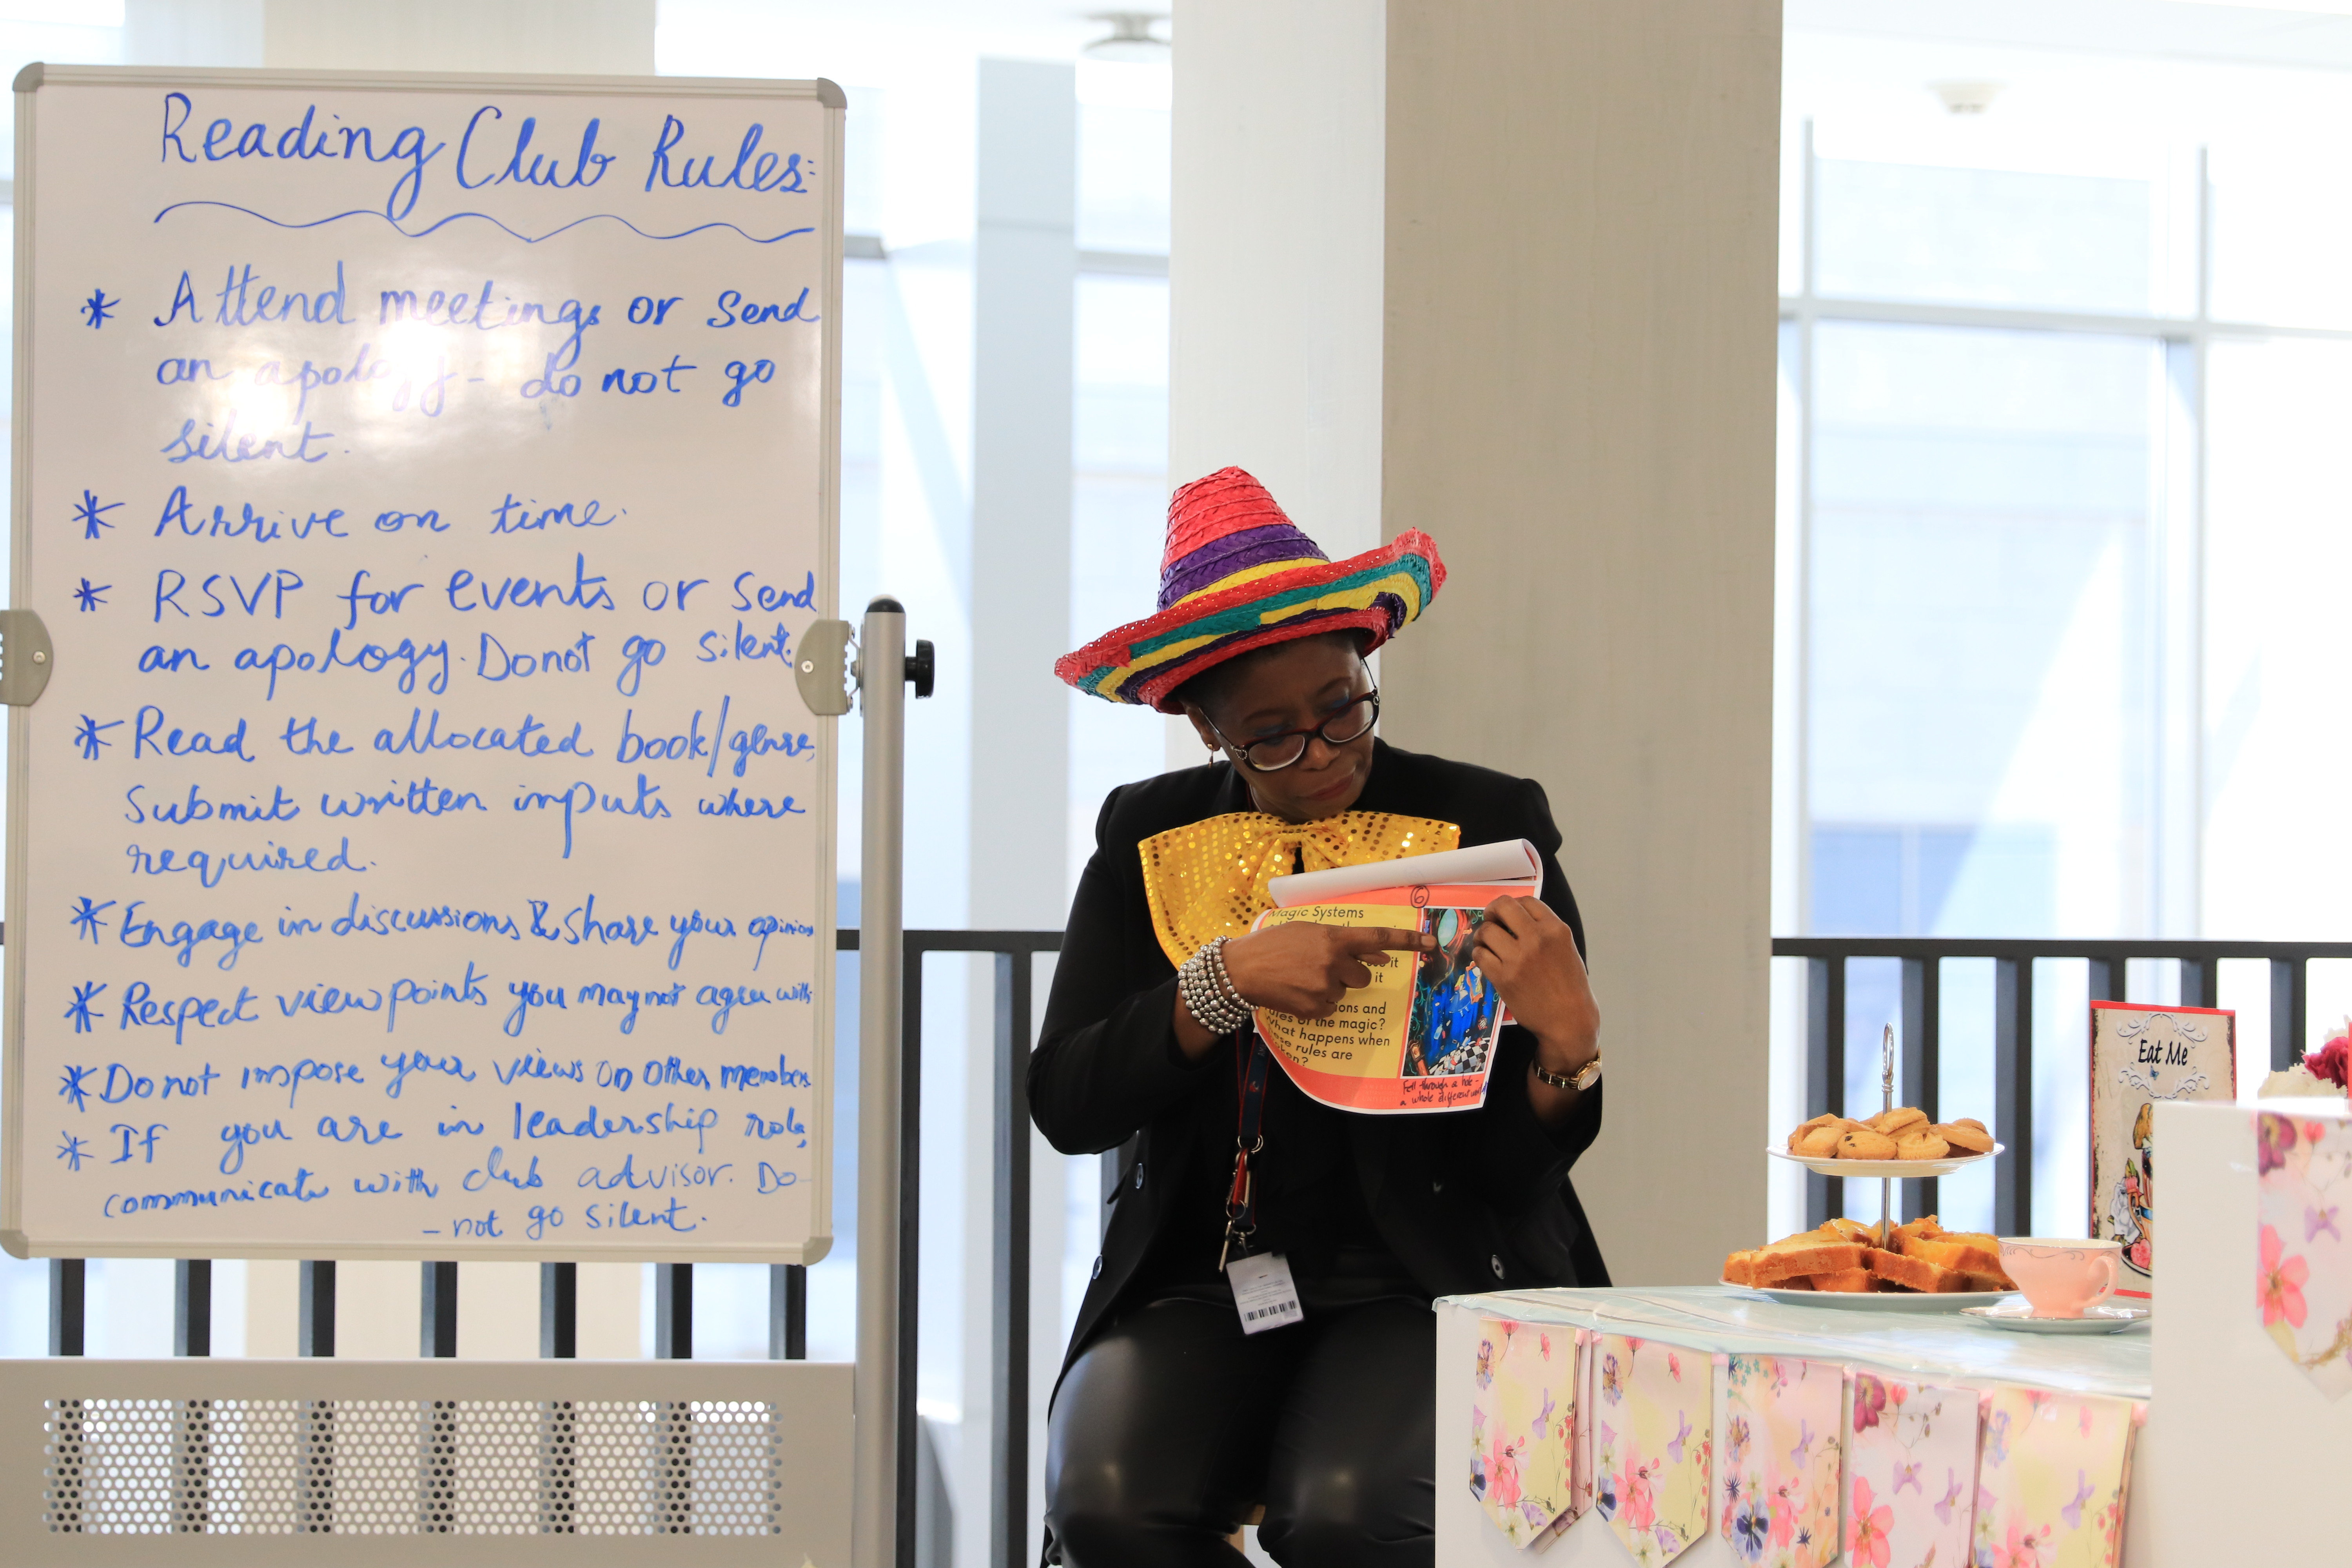 Reading Club Rules:
* Attend meetings or send
an apology - do not go
silent.
* Arrive on time.
* RSVP for events or send
an apology. Do not go silent.
* Read the allocated book/genre,
Submit written inputs where
required.
* Engage in discussions & share your opinions
* Respect viewpoints you may not agree with
* Do not impose your views on other members
* If you are in leadership role,
communicate with club advisor. Do-
- not go silent.
6
Magic Systems
it
it
ions and
rules of the magic?
What happens when
rules are
Fell through a hole -
a whole different world
Eat Me